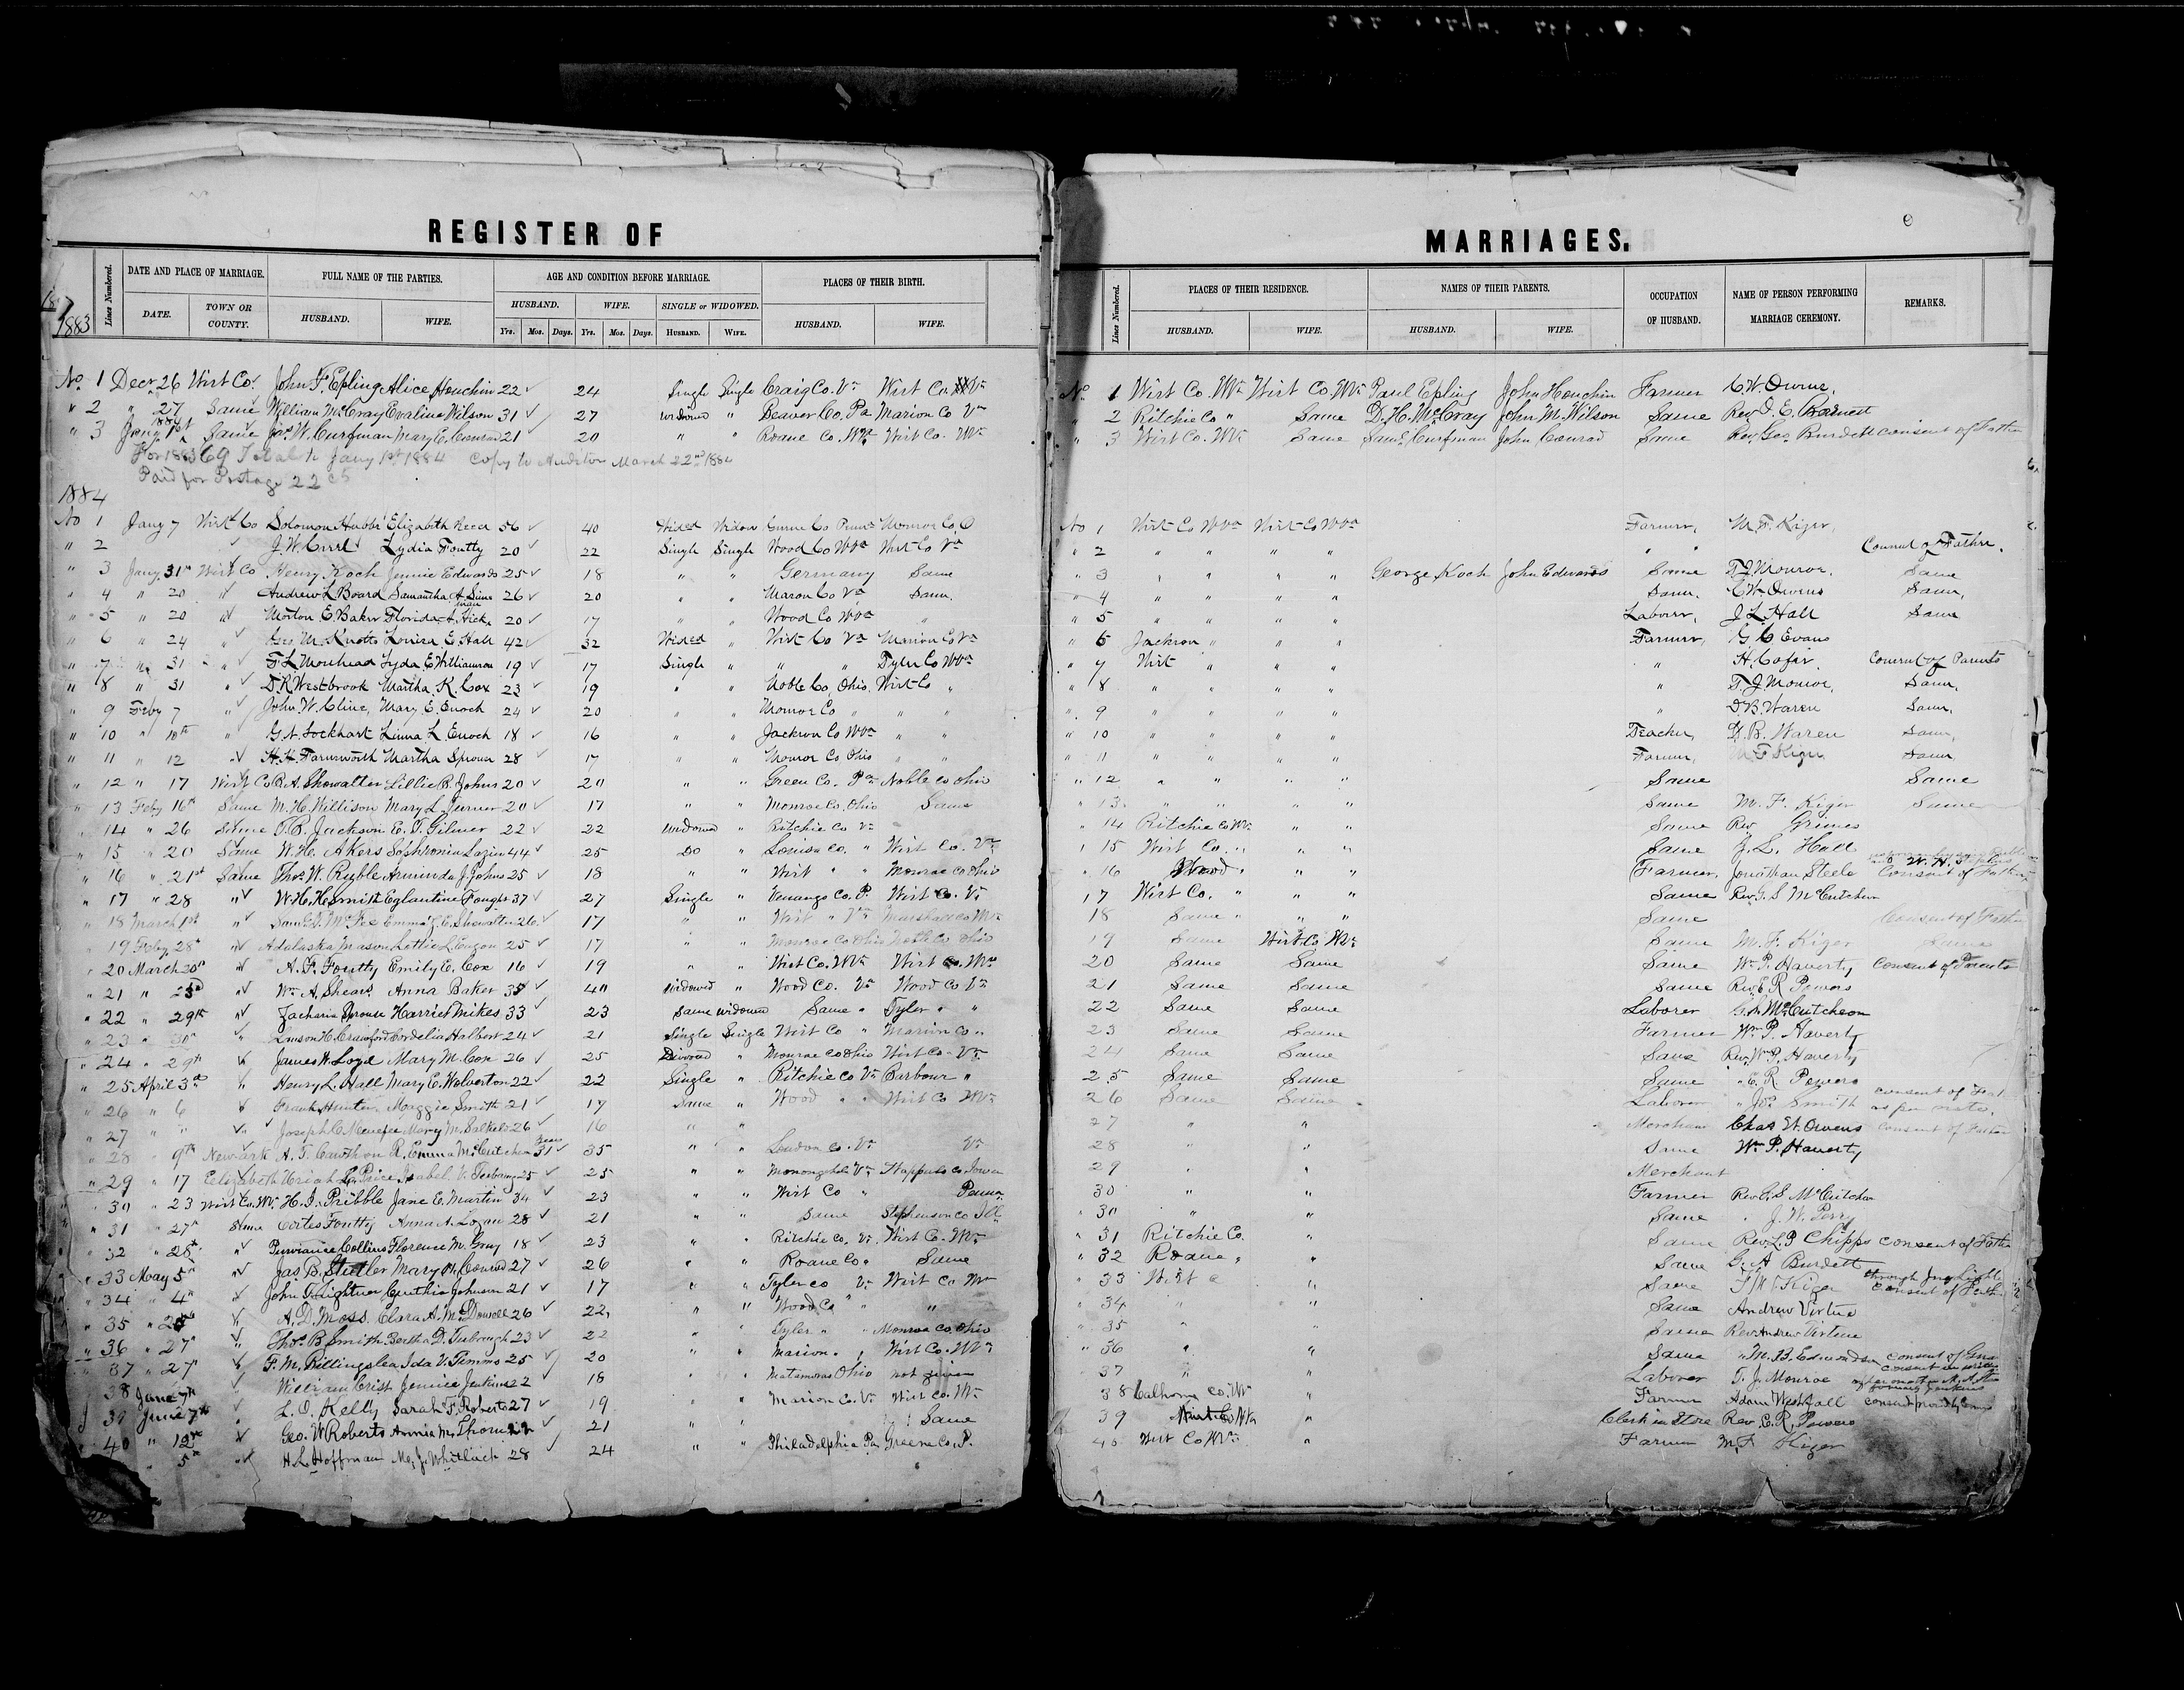 REGISTER OF
DATE AND PLACE OF MARRIAGE. FULL NAME OF THE PARTIES. AGE AND CONDITION BEFORE MARRIAGE. PLACES OF THEIR BIRTH.
Lines Numbered. DATE. TOWN OR COUNTY. HUSBAND. WIFE. HUSBAND. WIFE. SINGLE or WIDOWED. HUSBAND. WIFE.
Yrs. Mos. Days. Yrs. Mos. Days. HUSBAND. WIFE.
1883
No. 1 Decr 26 Wirt Co. John F. Epling Alice Houchin 22 24 Single Single Craig Co. Va Wirt Co. Va
" 2 " 27 Same William McCray Evaline Wilson 31 27 widowed " Beaver Co. Pa Marion Co Va
" 3 Jany 1st 1884 Same Jas. W. Curfman Mary E. Conrad 21 20 " " Roane Co. WVa Wirt Co. WVa
For 1883 69 Total to Jany 1st 1884 Copy to Auditor March 22nd 1884
Paid for Postage 22 c5
1884
No 1 Jany 7 Wirt Co Solomon Hubbs Elizabeth Reed 56 40 Wided Widow Green Co Penna Monroe Co O
" 2 J. W. Lydia Foutty 20 22 Single Single Wood Co WVa Wirt Co Va
" 3 Jany 31st Wirt Co Henry Koch Jennie Edwards 25 18 " " Germany Same
" 4 " 20 " Andrew L Board Samantha A Sims 26 20 " " Marion Co Va Same.
" 5 " 20 " Morton E. Baker Florida A. Hicks 20 17 " Wood Co WVa "
" 6 " 24 " Geo M. Knotts Louisa E. Hall 42 32 Wided " Wirt Co Va Marion Co Va
" 7 " 31 " F. L Morehead Lyda E. Williamson 19 17 Single " " " Tyler Co WVa
" 8 " 31 " D. R. Westbrook Martha K. Cox 23 19 " " Noble Co, Ohio. Wirt Co "
" 9 Feby 7 " John W. Cline, Mary E. Enoch 24 20 " " Monroe Co " " "
" 10 " 10th " G. A. Lockhart Linna L. Enoch 18 16 " " Jackson Co WVa " "
" 11 " 12 " H. H. Farnsworth Martha Sprouse 28 17 " " Monroe Co Ohio " "
" 12 " 17 Wirt Co R. A. Showalter Lillie B. Johns 20 20 " " Green Co. Pa Noble co Ohio
" 13 Feby 16th Same M. H. Willison Mary L. Turner 20 17 " " Monroe Co, Ohio Same
14 " 26 Same T. B. Jackson E. T. Gilmer 22 22 widowed " Ritchie Co Va
" 15 " 20 Same W. H. Akers Sophronia 44 25 Do " Louisa Co. " Wirt Co. Va
" 16 " 21st Same Thos. W. Ruble Arminda J. Johns 25 18 " " Wirt " " Monroe co Ohio
" 17 " 28 " W. H. H. Smith Eglantine Fought 37 27 Single " Venango Co. P. Wirt Co. Va
" 18 March 1st " Saml. McFee Emma J. E. Showalter 26 17 " " Wirt " Va Marshall co WVa
" 19 Feby 28th " Adalaska Mason Lottie L. 25 17 " " Monroe Co Ohio Noble Co Ohio
" 20 March 20th " A. F. Foutty Emily E. Cox 16 19 " " Wirt Co. WVa Wirt Co. WVa
" 21 " 23d " Wm. A. Shears Anna Baker 35 40 widowed " Wood Co. Va Wood Co Va
" 22 " 29th " Zacharia Sprouse Harriet Mikes 33 23 Same widowed Same " Tyler " "
" 23 " 30th " Crawford Cordelia Halbert 24 21 Single Single Wirt Co " Marion Co "
" 24 " 29th " James W Loyd Mary M. Cox 26 25 Divorced " Monroe co Ohio Wirt Co. Va
" 25 April 3d " Henry L. Hall Mary E. Wolverton 22 22 Single " Ritchie Co Va Barbour "
" 26 " 6 " Frank Hunter Maggie Smith 21 17 Same " Wood " " Wirt Co WVa
" 27 " " " Joseph C. Menefee Mary M. 26 16 " "
" 28 " 9th Newark A. T. Cawthon R. Emma McCutchen 31 35 " " Loudon Co. Va Va
" 29 " 17 Elizabeth Uriah Price Isabel V. 25 25 " " Va co. Iowa
" 30 " 23 Wirt Co. WVa H. I. Pribble Jane E. Martin 34 23 " " Wirt Co " Penna
" 31 " 27th Same Foutty Anna A. Logan 28 21 " " Same Stephenson Co Ill
" 32 " 28th " Purviance Collins Florence M. Gray 18 23 " " Ritchie Co, Va. Wirt Co. WVa
" 33 May 5th " Jas. B. Stutler Mary M. Conrad 27 26 " " Roane Co " Same
" 34 " 4th " John T. Lightner Cynthia Johnson 21 17 " " Tyler co Va Wirt Co WVa
" 35 " " A. D. Moss. Clara A. McDowell 26 22 " " Wood Co " "
" 36 " 27th " Thos. B. Smith Bertha D. 23 22 " Tyler " " Monroe Co, Ohio
" 37 " 27th " F. M. Billingslea Ida V. Timms 25 20 " " Marion " " Wirt Co. WVa
38 June 7th William Crist Jennie Jenkins 22 18 " Matamoras Ohio not given
39 June 7th L. O. Kelly Sarah F. Roberts 27 19 " " Marion Co. Va Wirt Co. WVa
" 40 " 12th Geo. W Roberts Annie M. Thorn 22 21 " " " Same
" 5th " H. L. Hoffman M. J. Whitlach 28 24 " " Philadelphia Pa Greene Co. P.
MARRIAGES.
PLACES OF THEIR RESIDENCE. NAMES OF THEIR PARENTS. OCCUPATION OF HUSBAND. NAME OF PERSON PERFORMING MARRIAGE CEREMONY. REMARKS.
Lines Numbered. HUSBAND. WIFE. HUSBAND. WIFE.
No. 1 Wirt Co. WVa Wirt Co. WVa Paul Epling John Houchin Farmer C. W. Owens,
" 2 Ritchie Co " Same D. H. McCray John M. Wilson Same Rev. D. E. Barnett
" 3 Wirt Co. WVa Same Saml. Curfman John Conrad Same Rev. Geo. Burdett consent of Father
No 1 Wirt Co WVa Wirt Co WVa Farmer, M. F. Kiger,
" 2 " " " " " " Consent of Father.
" 3 " " " " George Koch John Edwards Same T. J. Monroe. Same
" 4 " " " " Same. C. W. Owens Same.
" 5 " " " " Laborer, J. L. Hall Same
" 6 Jackson " " " Farmer, G. C Evans
" 7 Wirt " " " " H. Cofer. Consent of Parents
" 8 " " " " " T. J. Monroe, Same,
" 9 " " " " " D. B. Waren Same,
" 10 " " " " Teacher, D. B. Waren Same,
" 11 " " " " Farmer, M. F Kiger Same,
" 12 " " " " Same Same
" 13 " " " " Same M. F. Kiger Same
" 14 Ritchie Co WVa " " Same Rev Grimes
" 15 Wirt Co. " " " Same J. L. Hall
" 16 Wood " " " Farmer, Jonathan Steele Consent of Father
17 Wirt Co. " " " Same Rev. G. S McCutchen
18 Same " " " Same Consent of Father
19 Same Wirt Co WVa Same M. F. Kiger Same
20 Same Same Same Wm. P. Haverty Consent of Parents
21 Same Same Same Rev. E R Powers
22 Same Same Laborer G. S. McCutcheon
23 Same Same Farmer Wm. P. Haverty
24 Same Same Same Rev. Wm. P. Haverty
25 Same Same Same " E. R. Powers
26 Same Same Laborer " Jos. Smith consent of as per note.
27 " " Merchant Chas W. Owens Consent of Father
28 " " Same Wm P. Haverty
29 " " Merchant
30 " " Farmer Rev. G. S McCutchen
" 30 " " Same " J. W. Perry
" 31 Ritchie Co. " Same Rev. L. P Chipps consent of Father
" 32 Roane " " Same G. A Burdett
" 33 Wirt " Same M F Kiger Consent of Father
" 34 " " Same Andrew Virtue
" 35 " " Same Rev. Andrew Virtue
" 36 " " Same " M. B. Edmondson consent of
37 " " Laborer T. J. Monroe
38 Calhoun Co. WVa " Farmer Adam Westfall
39 Wirt Co WVa " Clerk in Store Rev. E. R. Powers
40 Wirt Co WVa " Farmer M F Kiger